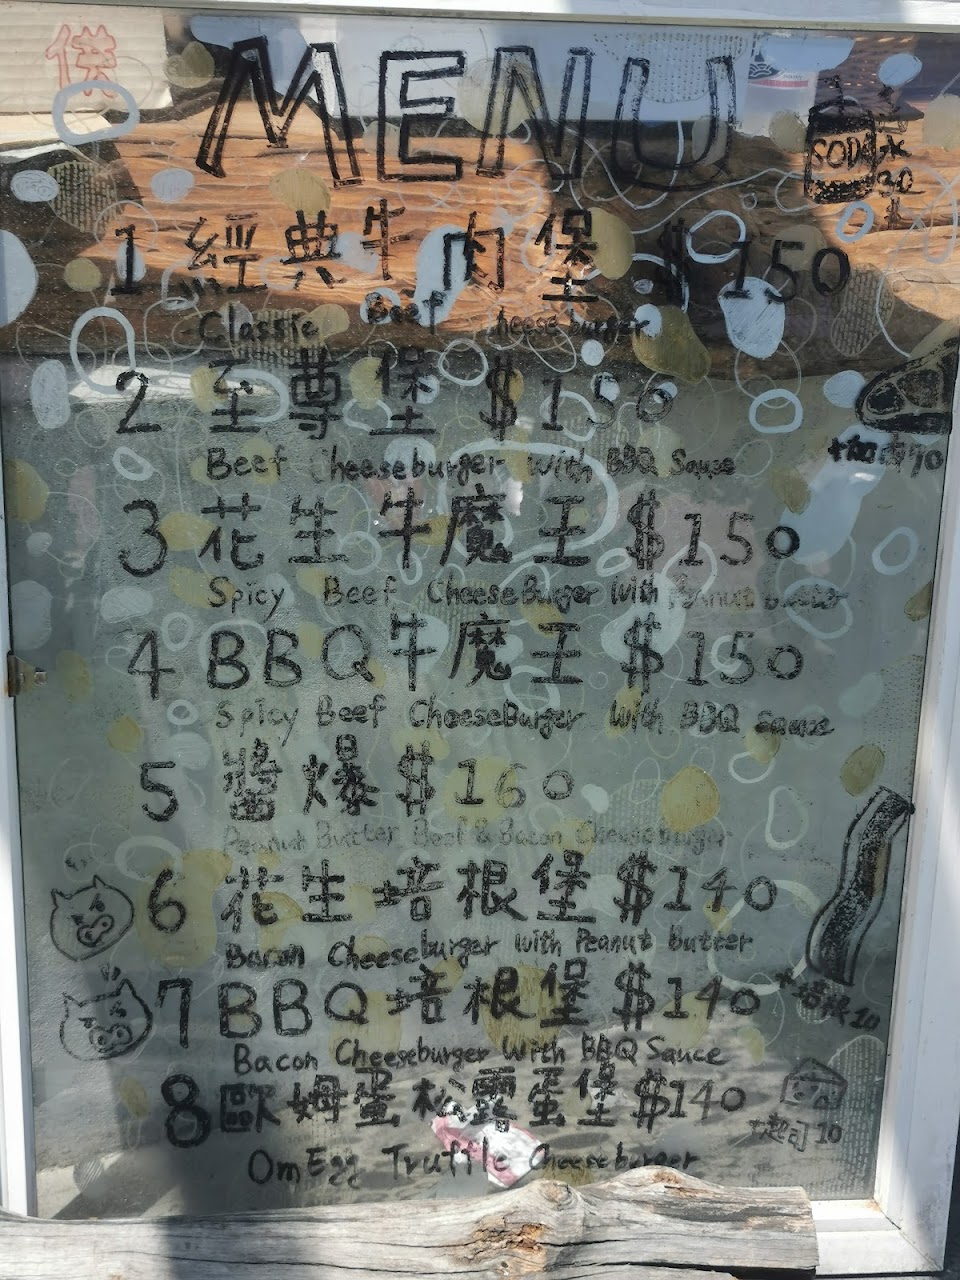 MENU
SODA水
30
1 經典牛肉堡 $150
Classic Beef Cheeseburger
2 至尊堡 $150
Beef Cheeseburger with BBQ Sauce
3 花生牛魔王 $150
Spicy Beef CheeseBurger With Peanut butter
4 BBQ牛魔王 $150
Spicy Beef CheeseBurger With BBQ sauce
5 醬爆 $160
Peanut Butter Beef & Bacon Cheeseburger
6 花生培根堡 $140
Bacon Cheeseburger with Peanut butter
7 BBQ培根堡 $140
+培根10
Bacon Cheeseburger With BBQ Sauce
8 歐姆蛋松露蛋堡 $140
+起司10
OmEgg Truffle Cheeseburger